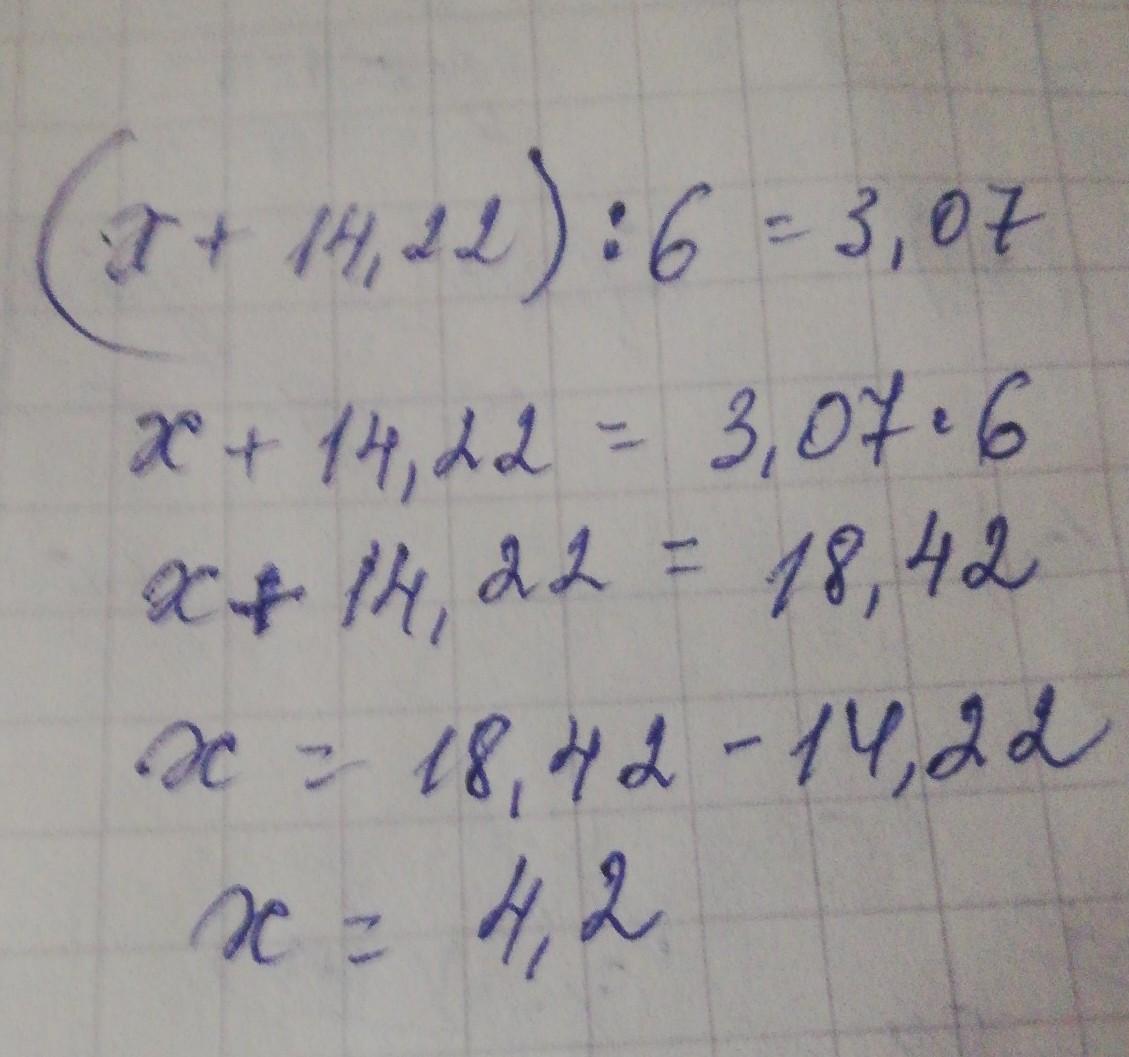 (x + 14,22) : 6 = 3,07
x + 14,22 = 3,07 · 6
x + 14,22 = 18,42
x = 18,42 - 14,22
x = 4,2